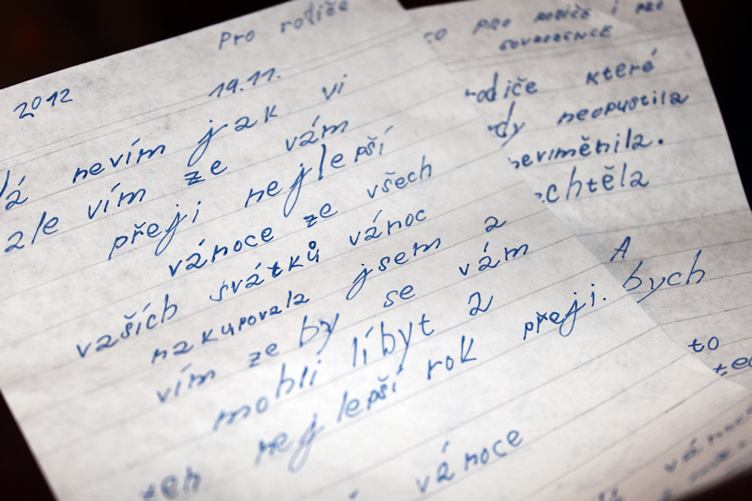 Pro rodiče
2012 19.11.
Já nevím jak vi
ale vím ze vám
přeji nejlepší
vánoce ze všech
vašich svátků vánoc
nakupovala jsem a
vím ze by se vám
mohli líbyt a
ten nejlepší rok přeji.
vánoce
PRO RODIČE i PRO
SOUROZENCE
rodiče které
neopustila
neviměnila.
chtěla
A
bych
to
vánoce